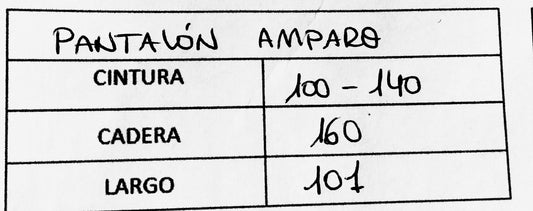 PANTALÓN AMPARO
CINTURA 100 - 140
CADERA 160
LARGO 101